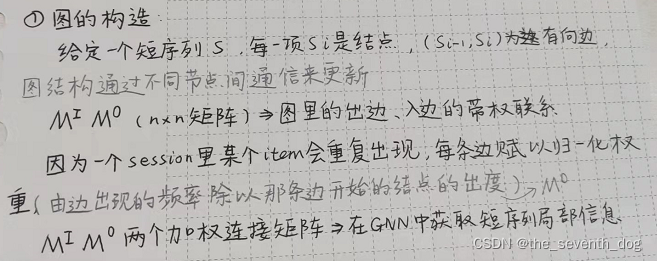 ①图的构造:
给定一个短序列S,每一项Si是结点,(Si-1,Si)为有向边,
图结构通过不同节点间通信来更新
M^I M^O (n×n矩阵)⇒图里的出边、入边的带权联系
因为一个session里某个item会重复出现,每条边赋以归一化权
重(由边出现的频率除以那条边开始的结点的出度)→M^O
M^I M^O 两个加权连接矩阵⇒在GNN中获取短序列局部信息
CSDN @the_seventh_dog